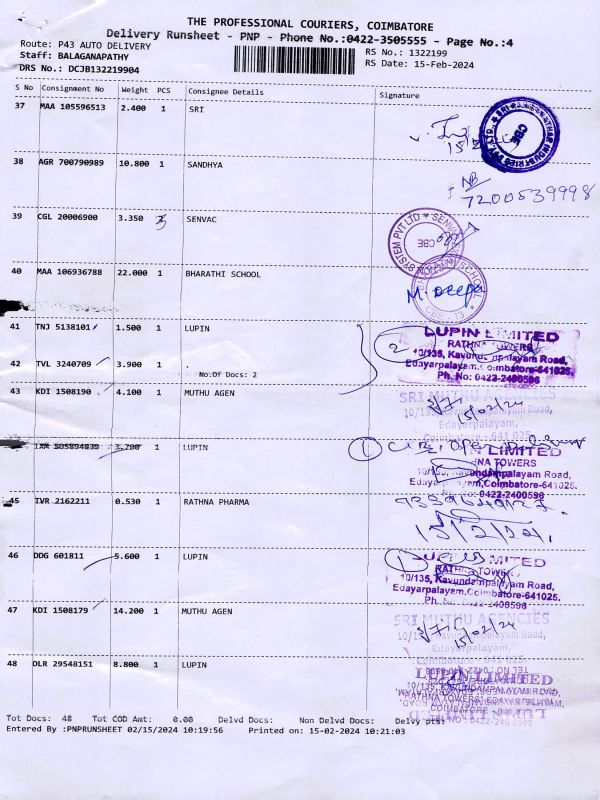 THE PROFESSIONAL COURIERS, COIMBATORE
Delivery Runsheet - PNP - Phone No.:0422-3505555 - Page No.:4
Route: P43 AUTO DELIVERY
RS No.: 1322199
Staff: BALAGANAPATHY
RS Date: 15-Feb-2024
DRS No.: DCJB132219904
S No Consignment No Weight PCS Consignee Details Signature
37 MAA 105596513 2.400 1 SRI
CBE
38 AGR 700790989 10.800 1 SANDHYA
NB
7200539998
39 CGL 20006900 3.350 3 SENVAC
SYSTEM PVT LTD ★ SENVAC
CBE
40 MAA 106936788 22.000 1 BHARATHI SCHOOL
M. Deepa
41 TNJ 5138101 1.500 1 LUPIN
2
LUPIN LIMITED
RATHNA TOWERS
10/135, Kavundampalayam Road,
Edayarpalayam, Coimbatore-641025.
Ph. No: 0422-2400596
42 TVL 3240709 3.900 1
No.Of Docs: 2
43 KDI 1508190 4.100 1 MUTHU AGEN
SRI MUTHU AGENCIES
10/135, Kavundampalayam Road,
Edayarpalayam,
Coimbatore - 641 025.
15/02/24
3.780 1 LUPIN
1
LIMITED
RATHNA TOWERS
10/135, Kavundampalayam Road,
Edayarpalayam, Coimbatore-641025.
0422-2400596
45 IVR 2162211 0.530 1 RATHNA PHARMA
15/2/24.
46 DDG 601811 5.600 1 LUPIN
1
LUPIN LIMITED
RATHNA TOWERS
10/135, Kavundampalayam Road,
Edayarpalayam, Coimbatore-641025.
Ph. No: 0422-2400596
47 KDI 1508179 14.200 1 MUTHU AGEN
SRI MUTHU AGENCIES
Edayarpalayam,
15/02/24
48 DLR 29548151 8.800 1 LUPIN
LUPIN LIMITED
Tot Docs: 48 Tot COD Amt: 0.00 Delvd Docs: Non Delvd Docs: Delvy pts:
Entered By :PNPRUNSHEET 02/15/2024 10:19:56 Printed on: 15-02-2024 10:21:03